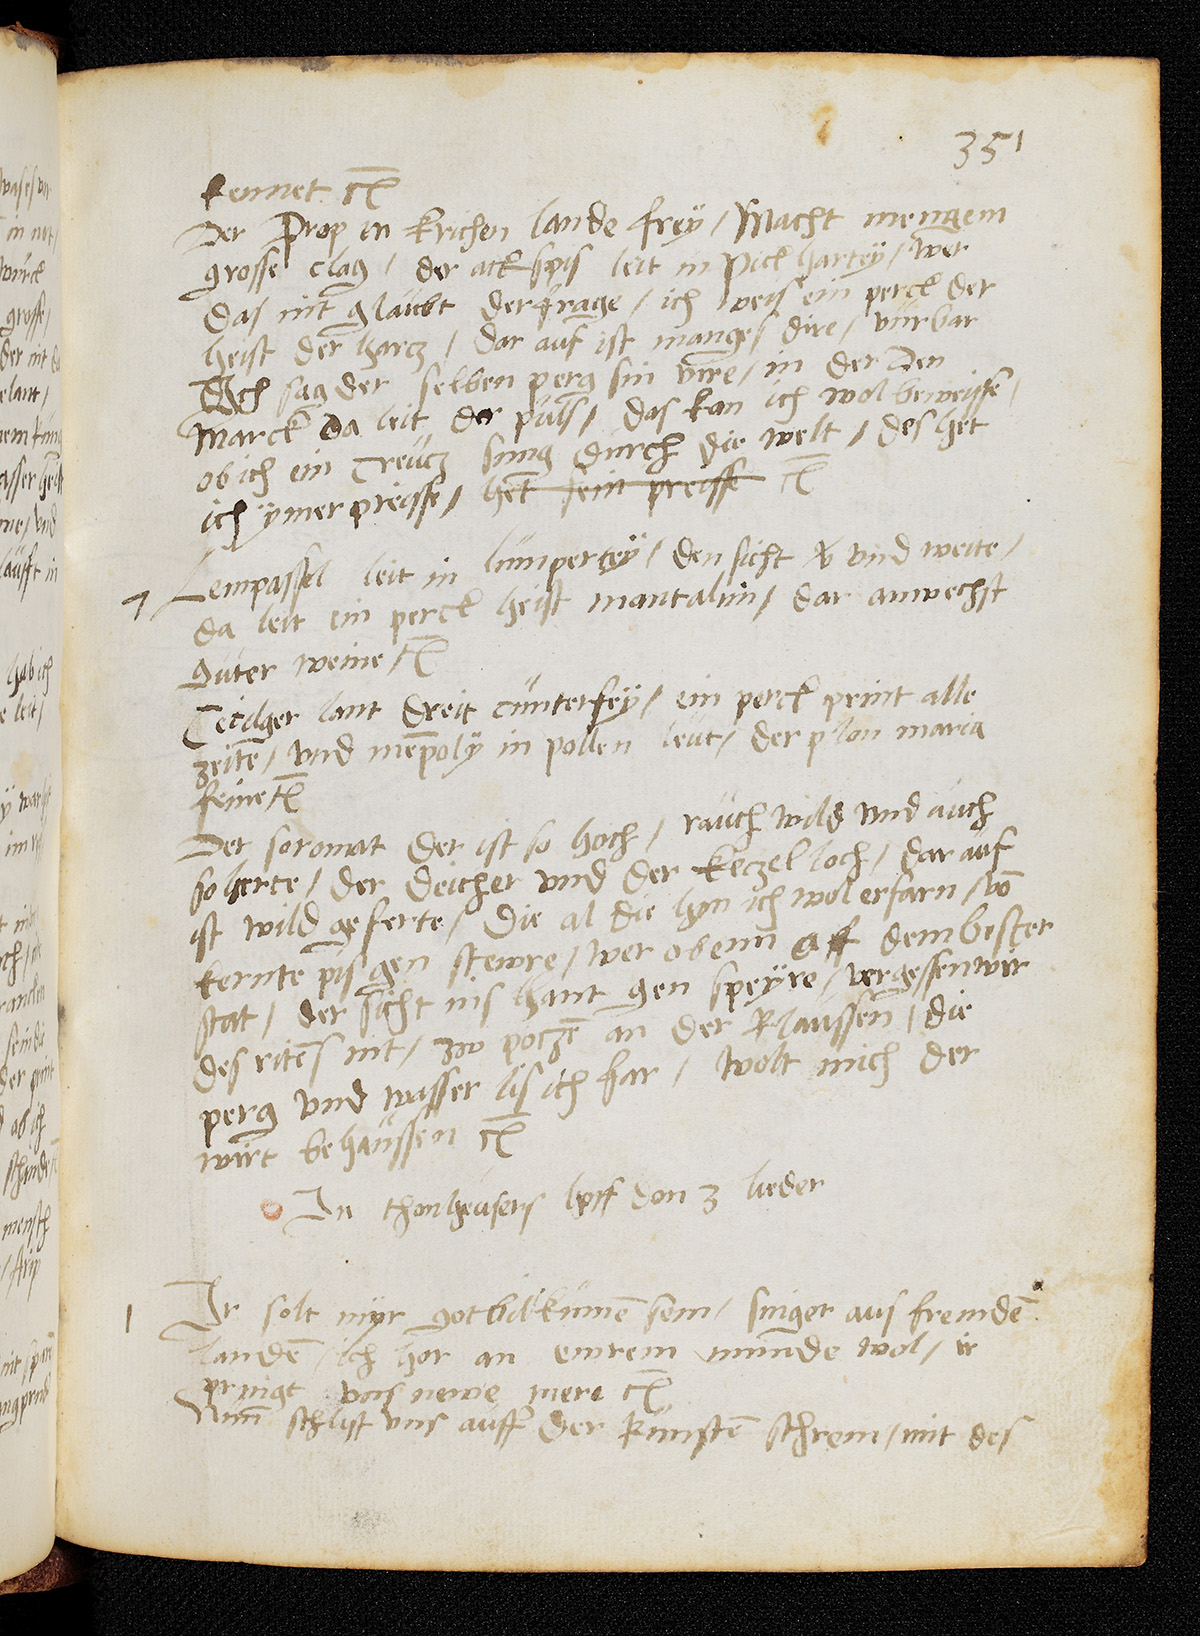 351
kennet rc
Der Prop in krichen lande frey / Macht mengem
grosse clag / der ackspis leit in Pickhartey / wer
das nit glaubt der frage / ich weis ein perck der
heist der harcz / dar auf ist manges dire / vürbar
Ich sag der selben perg sin vire / in der Den
Marck da leit der püls / das kan ich wol beweisse /
ob ich ein Creücz süng durch die welt / des het
ich ymer preisse / het sein preisse rc
7 Lempassel leit in lumpertey / den sicht vnd weite /
da leit ein perck heist mantalin / dar an wechst
guter weine rc
lant dreit cunterfey / ein perck print alle
zeitē / vnd mēpoly in pollen leüt / der plon maria
feine rc
Der soromat der ist so hoch / rauch wild vnd auch
so herte / der Deicher vnd der keczelloch / dar auf
ist wild geferte / Die al die hon ich wol erfarn / vō
kernte pis gen stewre / wer obenn aff dem bester
stat / der sicht ins hant gen speyre / vergessen wir
des ritēs nit / zw poczē an der Klaussen / die
perg vnd wasser lis ich far / wolt mich der
wirt behaussen rc
In thonheusers don 3 lieder
1 Ir solt myr gotbilkümē sein / singer aus fremdē
landē / ich hor an ewrem munde wol / ir
pringt vns newe mere rc
Nun schlist vns auff der künstē schrein / mit des